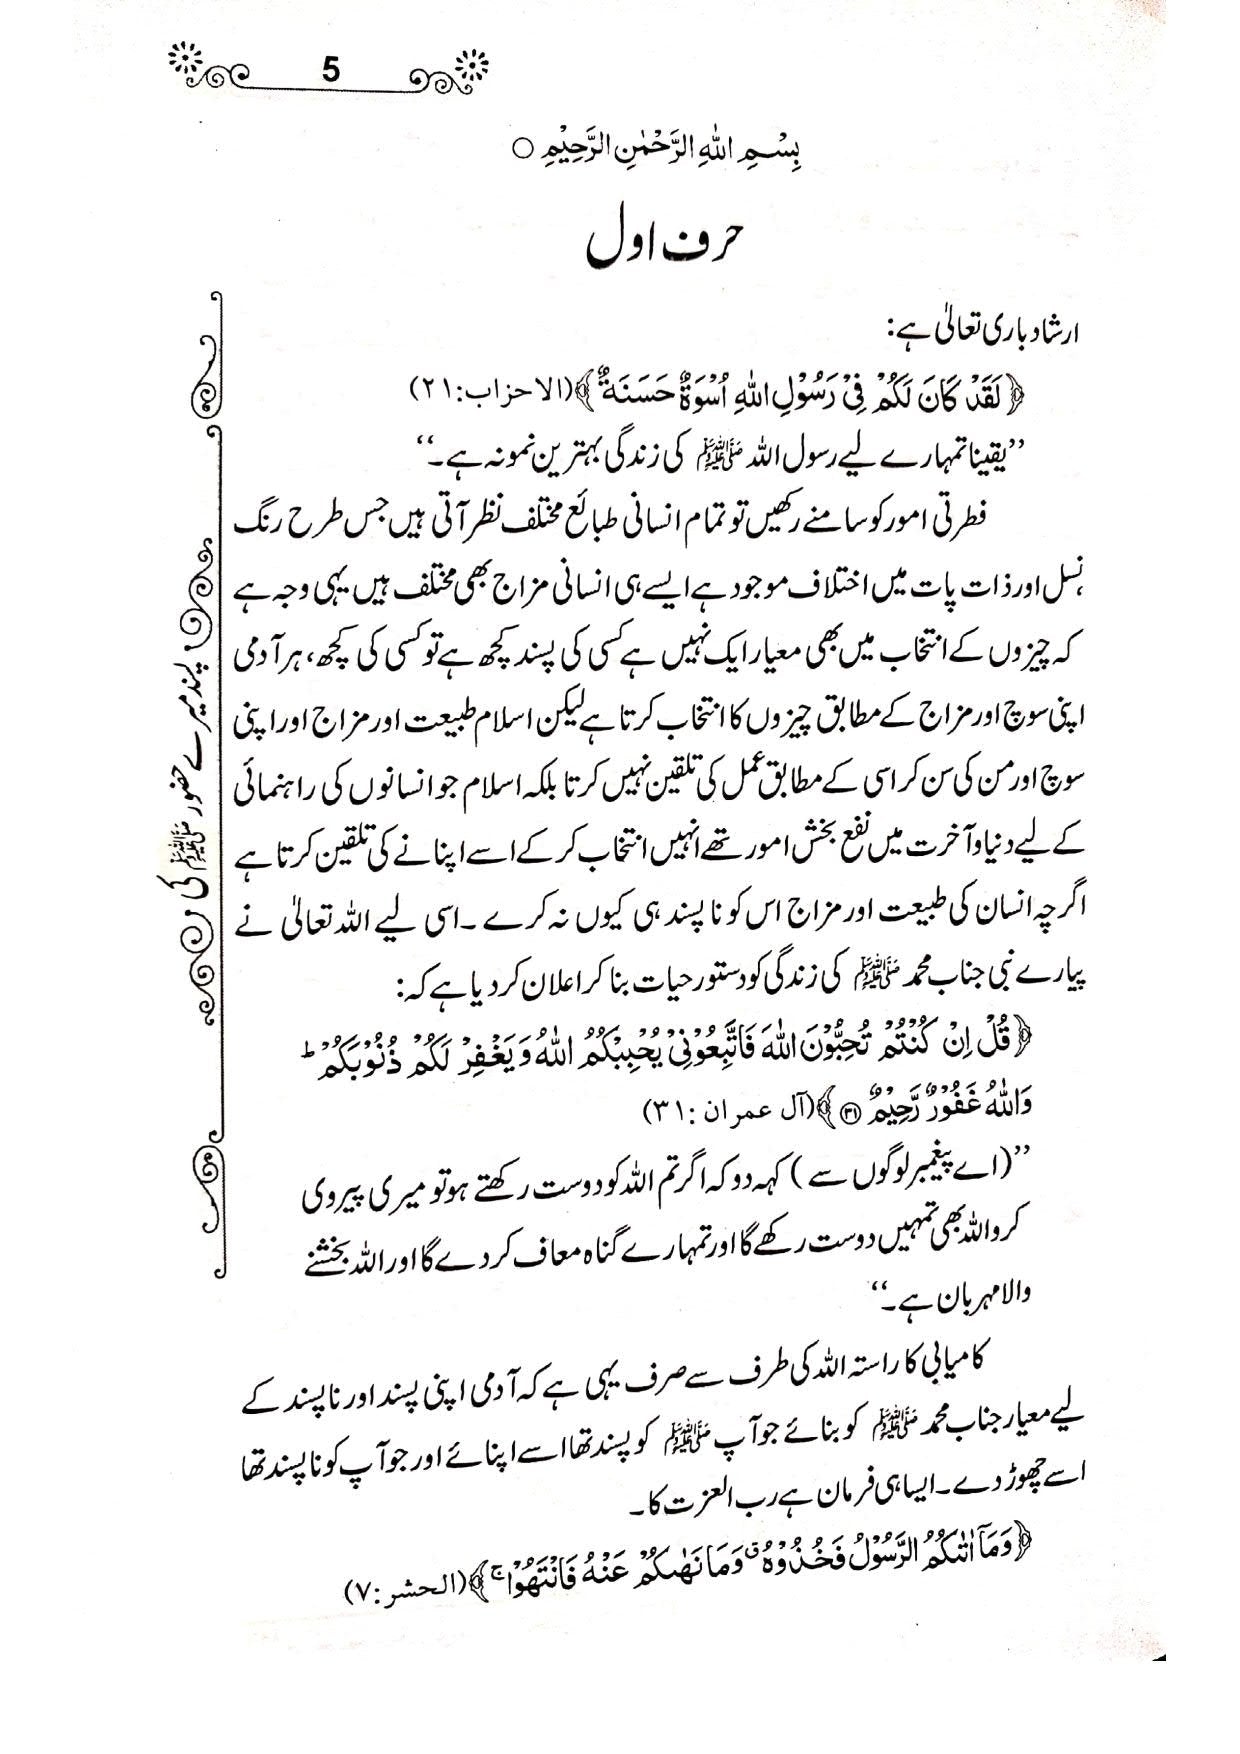 5
بِسْمِ اللهِ الرَّحْمٰنِ الرَّحِيْمِ ○
حرف اول
ارشاد باری تعالیٰ ہے:
﴿لَقَدْ كَانَ لَكُمْ فِيْ رَسُوْلِ اللهِ اُسْوَةٌ حَسَنَةٌ﴾(الاحزاب:۲۱)
’’یقینا تمہارے لیے رسول اللہ ﷺ کی زندگی بہترین نمونہ ہے۔‘‘
فطرتی امور کو سامنے رکھیں تو تمام انسانی طبائع مختلف نظر آتی ہیں جس طرح رنگ
نسل اور ذات پات میں اختلاف موجود ہے ایسے ہی انسانی مزاج بھی مختلف ہیں یہی وجہ ہے
کہ چیزوں کے انتخاب میں بھی معیار ایک نہیں ہے کسی کی پسند کچھ ہے تو کسی کی کچھ، ہر آدمی
اپنی سوچ اور مزاج کے مطابق چیزوں کا انتخاب کرتا ہے لیکن اسلام طبیعت اور مزاج اور اپنی
سوچ اور من کی سن کر اسی کے مطابق عمل کی تلقین نہیں کرتا بلکہ اسلام جو انسانوں کی راہنمائی
کے لیے دنیا و آخرت میں نفع بخش امور تھے انہیں انتخاب کر کے اسے اپنانے کی تلقین کرتا ہے
اگرچہ انسان کی طبیعت اور مزاج اس کو نا پسند ہی کیوں نہ کرے ۔ اسی لیے اللہ تعالیٰ نے
پیارے نبی جناب محمد ﷺ کی زندگی کو دستور حیات بنا کر اعلان کر دیا ہے کہ:
﴿قُلْ اِنْ كُنْتُمْ تُحِبُّوْنَ اللهَ فَاتَّبِعُوْنِيْ يُحْبِبْكُمُ اللهُ وَيَغْفِرْ لَكُمْ ذُنُوْبَكُمْ ؕ
وَاللهُ غَفُوْرٌ رَّحِيْمٌ ۳۱﴾(آل عمران :۳۱)
’’(اے پیغمبر لوگوں سے ) کہہ دو کہ اگر تم اللہ کو دوست رکھتے ہو تو میری پیروی
کرو اللہ بھی تمہیں دوست رکھے گا اور تمہارے گناہ معاف کر دے گا اور اللہ بخشنے
والا مہربان ہے۔‘‘
کامیابی کا راستہ اللہ کی طرف سے صرف یہی ہے کہ آدمی اپنی پسند اور نا پسند کے
لیے معیار جناب محمد ﷺ کو بنائے جو آپ ﷺ کو پسند تھا اسے اپنائے اور جو آپ کو نا پسند تھا
اسے چھوڑ دے ۔ ایسا ہی فرمان ہے رب العزت کا۔
﴿وَمَآ اٰتٰىكُمُ الرَّسُوْلُ فَخُذُوْهُ ۗ وَمَا نَهٰىكُمْ عَنْهُ فَانْتَهُوْا ۚ﴾(الحشر:۷)
پسند میرے حضور ﷺ کی